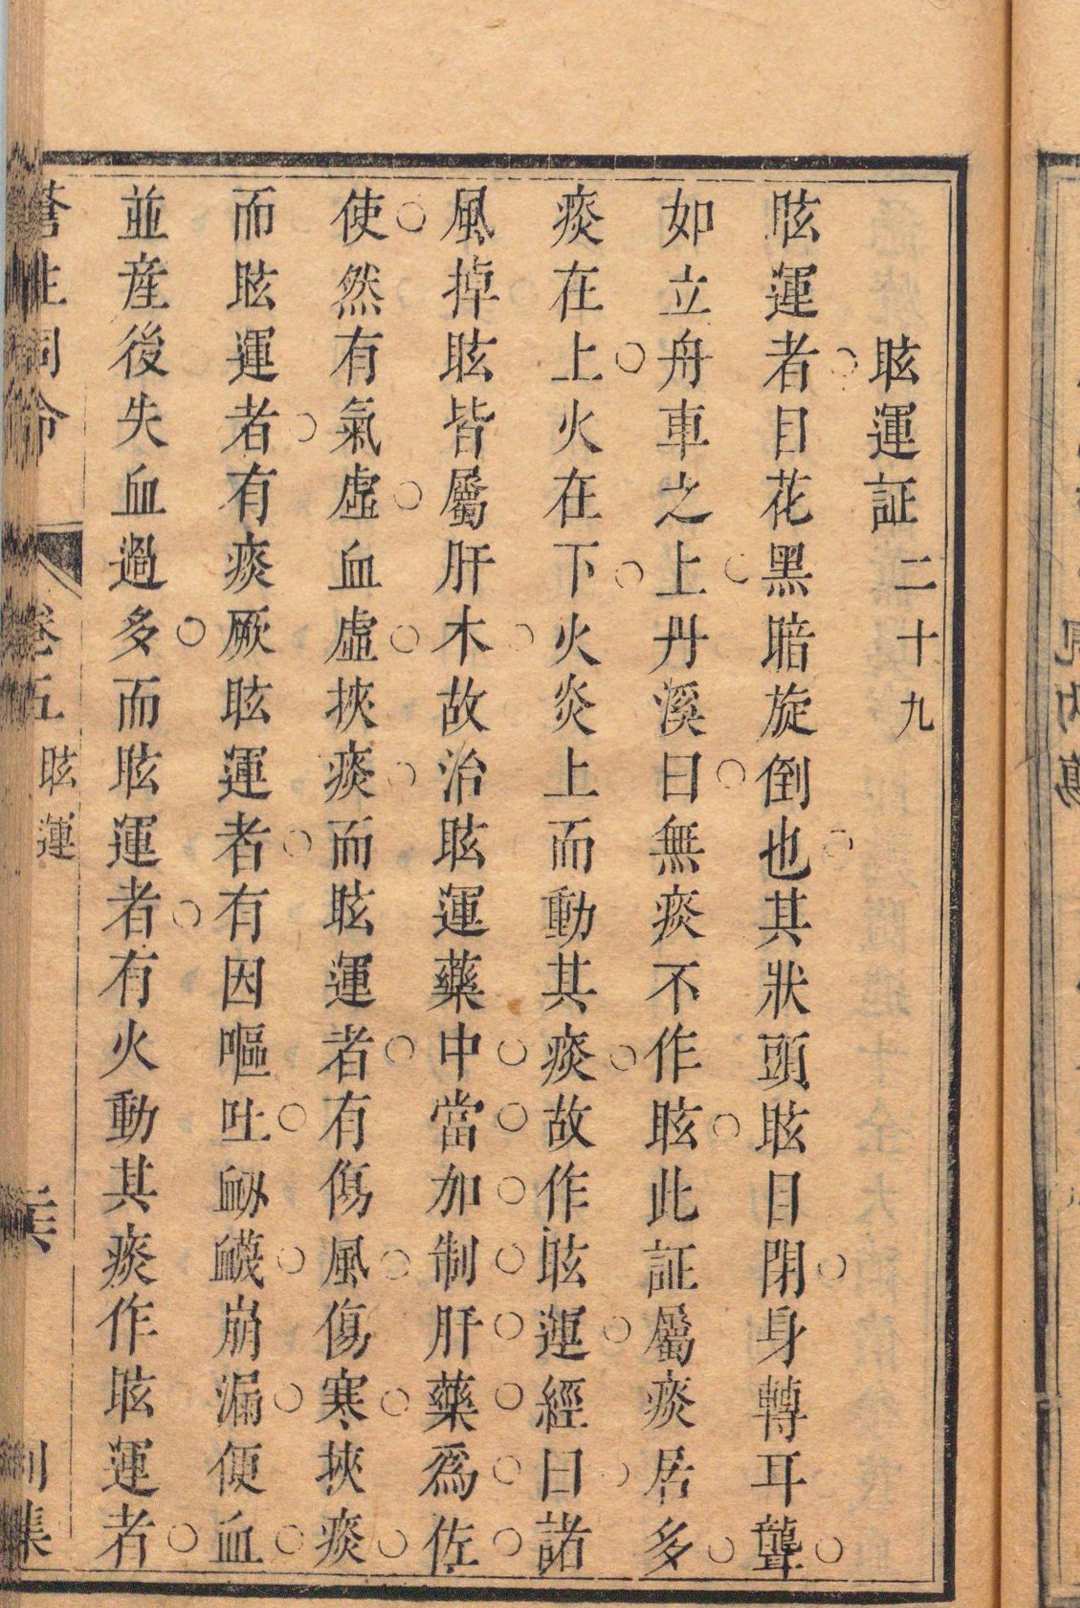 眩運証二十九
眩運者目花黑暗旋倒也其狀頭眩目閉身轉耳聾
如立舟車之上丹溪曰無痰不作眩此証屬痰居多
痰在上火在下火炎上而動其痰故作眩運經曰諸
風掉眩皆屬肝木故治眩運藥中當加制肝藥爲佐
使然有氣虛血虛挾痰而眩運者有傷風傷寒挾痰
而眩運者有痰厥眩運者有因嘔吐衂衊崩漏便血
並産後失血過多而眩運者有火動其痰作眩運者
卷五 眩運